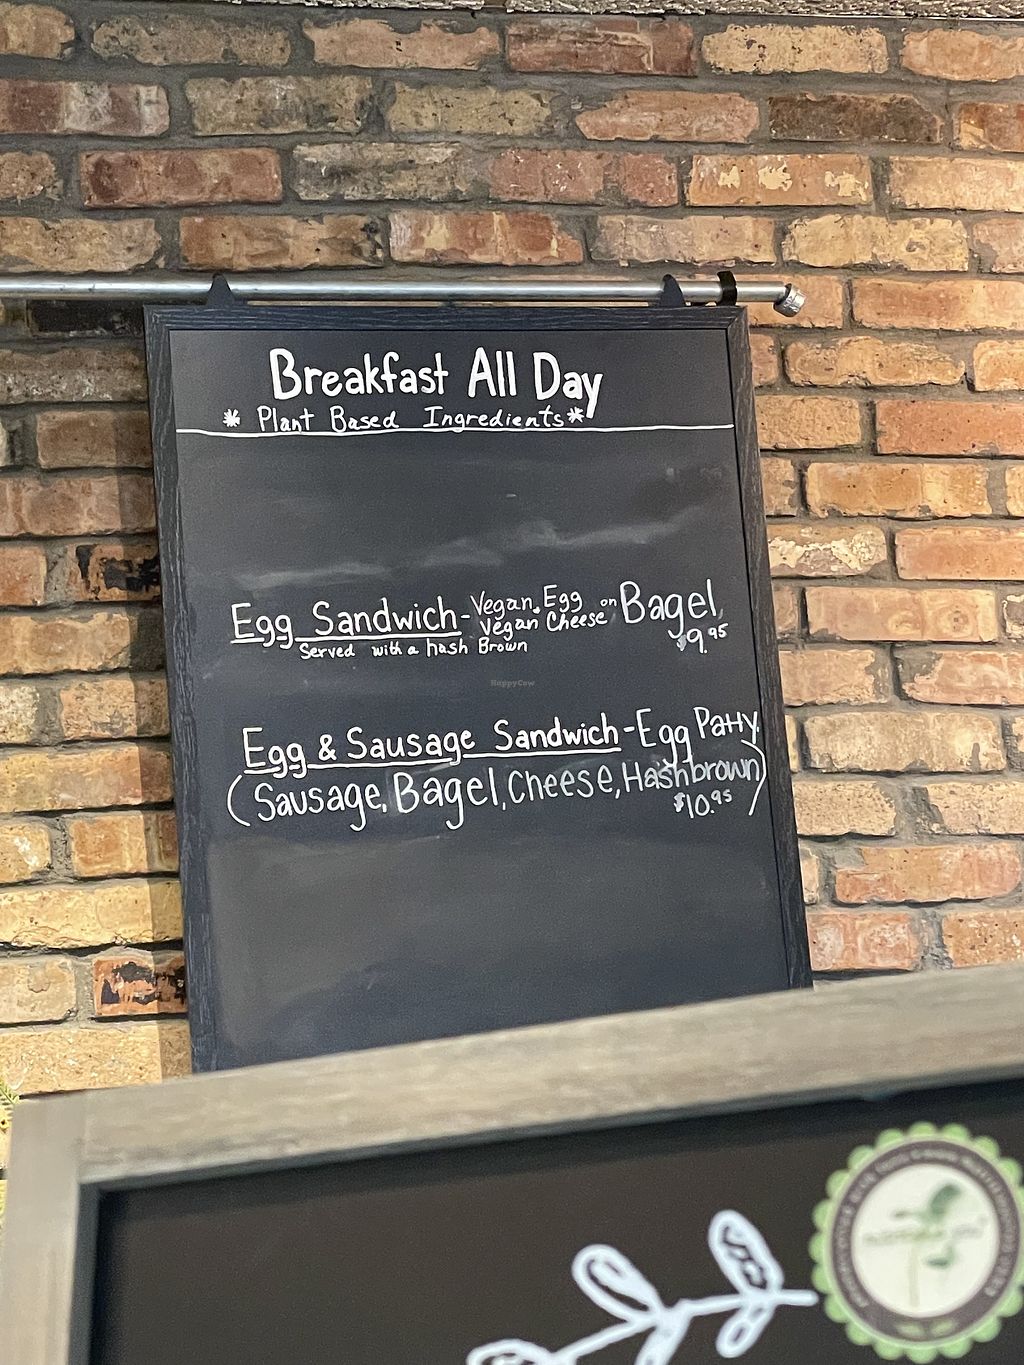 Breakfast All Day
* Plant Based Ingredients *
Egg Sandwich - Vegan Egg Vegan Cheese on Bagel
Served with a hash Brown $9.95
HappyCow
Egg & Sausage Sandwich - Egg Patty
(Sausage, Bagel, Cheese, Hashbrown)
$10.95